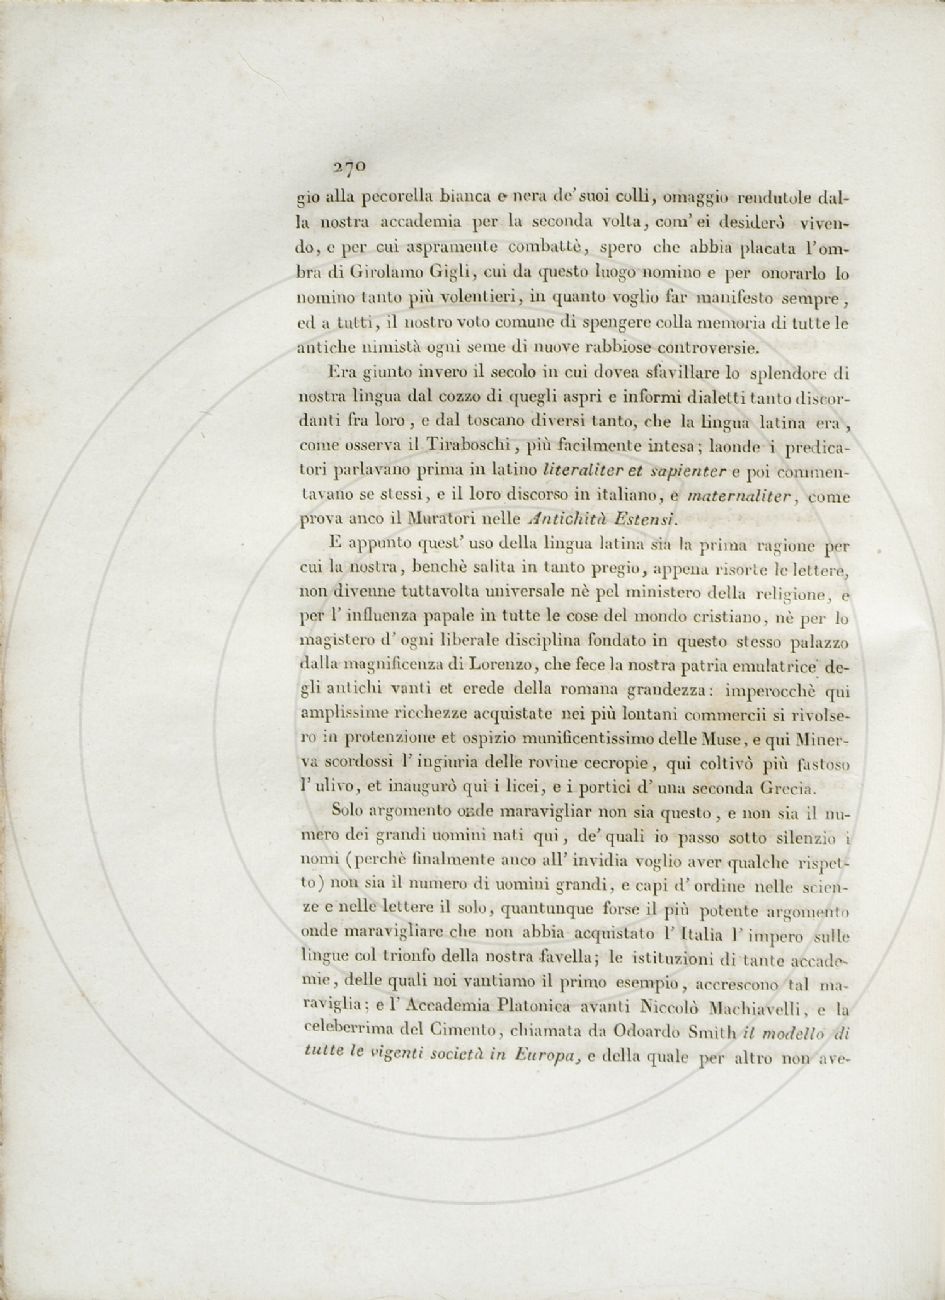 270
gio alla pecorella bianca e nera de' suoi colli, omaggio rendutole dal-
la nostra accademia per la seconda volta, com' ei desiderò viven-
do, e per cui aspramente combattè, spero che abbia placata l'om-
bra di Girolamo Gigli, cui da questo luogo nomino e per onorarlo lo
nomino tanto più volentieri, in quanto voglio far manifesto sempre,
ed a tutti, il nostro voto comune di spengere colla memoria di tutte le
antiche nimistà ogni seme di nuove rabbiose controversie.
Era giunto invero il secolo in cui dovea sfavillare lo splendore di
nostra lingua dal cozzo di quegli aspri e informi dialetti tanto discor-
danti fra loro, e dal toscano diversi tanto, che la lingua latina era,
come osserva il Tiraboschi, più facilmente intesa; laonde i predica-
tori parlavano prima in latino literaliter et sapienter e poi commen-
tavano se stessi, e il loro discorso in italiano, e maternaliter, come
prova anco il Muratori nelle Antichità Estensi.
E appunto quest' uso della lingua latina sia la prima ragione per
cui la nostra, benchè salita in tanto pregio, appena risorte le lettere,
non divenne tuttavolta universale nè pel ministero della religione, e
per l' influenza papale in tutte le cose del mondo cristiano, nè per lo
magistero d' ogni liberale disciplina fondato in questo stesso palazzo
dalla magnificenza di Lorenzo, che fece la nostra patria emulatrice de-
gli antichi vanti et erede della romana grandezza: imperocchè qui
amplissime ricchezze acquistate nei più lontani commercii si rivolse-
ro in protenzione et ospizio munificentissimo delle Muse, e qui Miner-
va scordossi l' ingiuria delle rovine cecropie, qui coltivò più fastoso
l' ulivo, et inaugurò qui i licei, e i portici d' una seconda Grecia.
Solo argomento onde maravigliar non sia questo, e non sia il nu-
mero dei grandi uomini nati qui, de' quali io passo sotto silenzio i
nomi (perchè finalmente anco all' invidia voglio aver qualche rispet-
to) non sia il numero di uomini grandi, e capi d' ordine nelle scien-
ze e nelle lettere il solo, quantunque forse il più potente argomento
onde maravigliare che non abbia acquistato l' Italia l' impero sulle
lingue col trionfo della nostra favella; le istituzioni di tante accade-
mie, delle quali noi vantiamo il primo esempio, accrescono tal ma-
raviglia; e l' Accademia Platonica avanti Niccolò Machiavelli, e la
celeberrima del Cimento, chiamata da Odoardo Smith il modello di
tutte le vigenti società in Europa, e della quale per altro non ave-